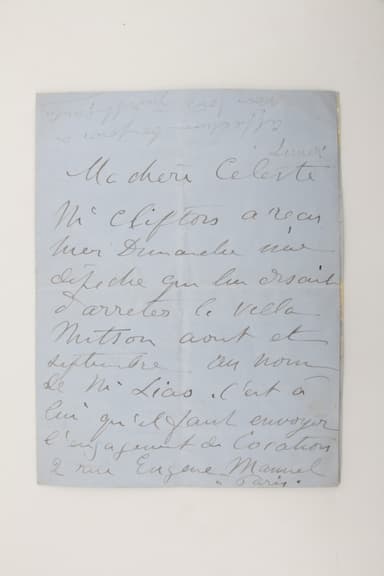 Lundi
Ma chère Celeste
Mr Cliftons a reçu
hier Dimanche une
dépêche qui lui disait
d'arreter la villa
août et
septembre au nom
de Mr Lias. C'est à
lui qu'il faut envoyer
l'engagement de location
2 rue Eugène Manuel
"Paris"